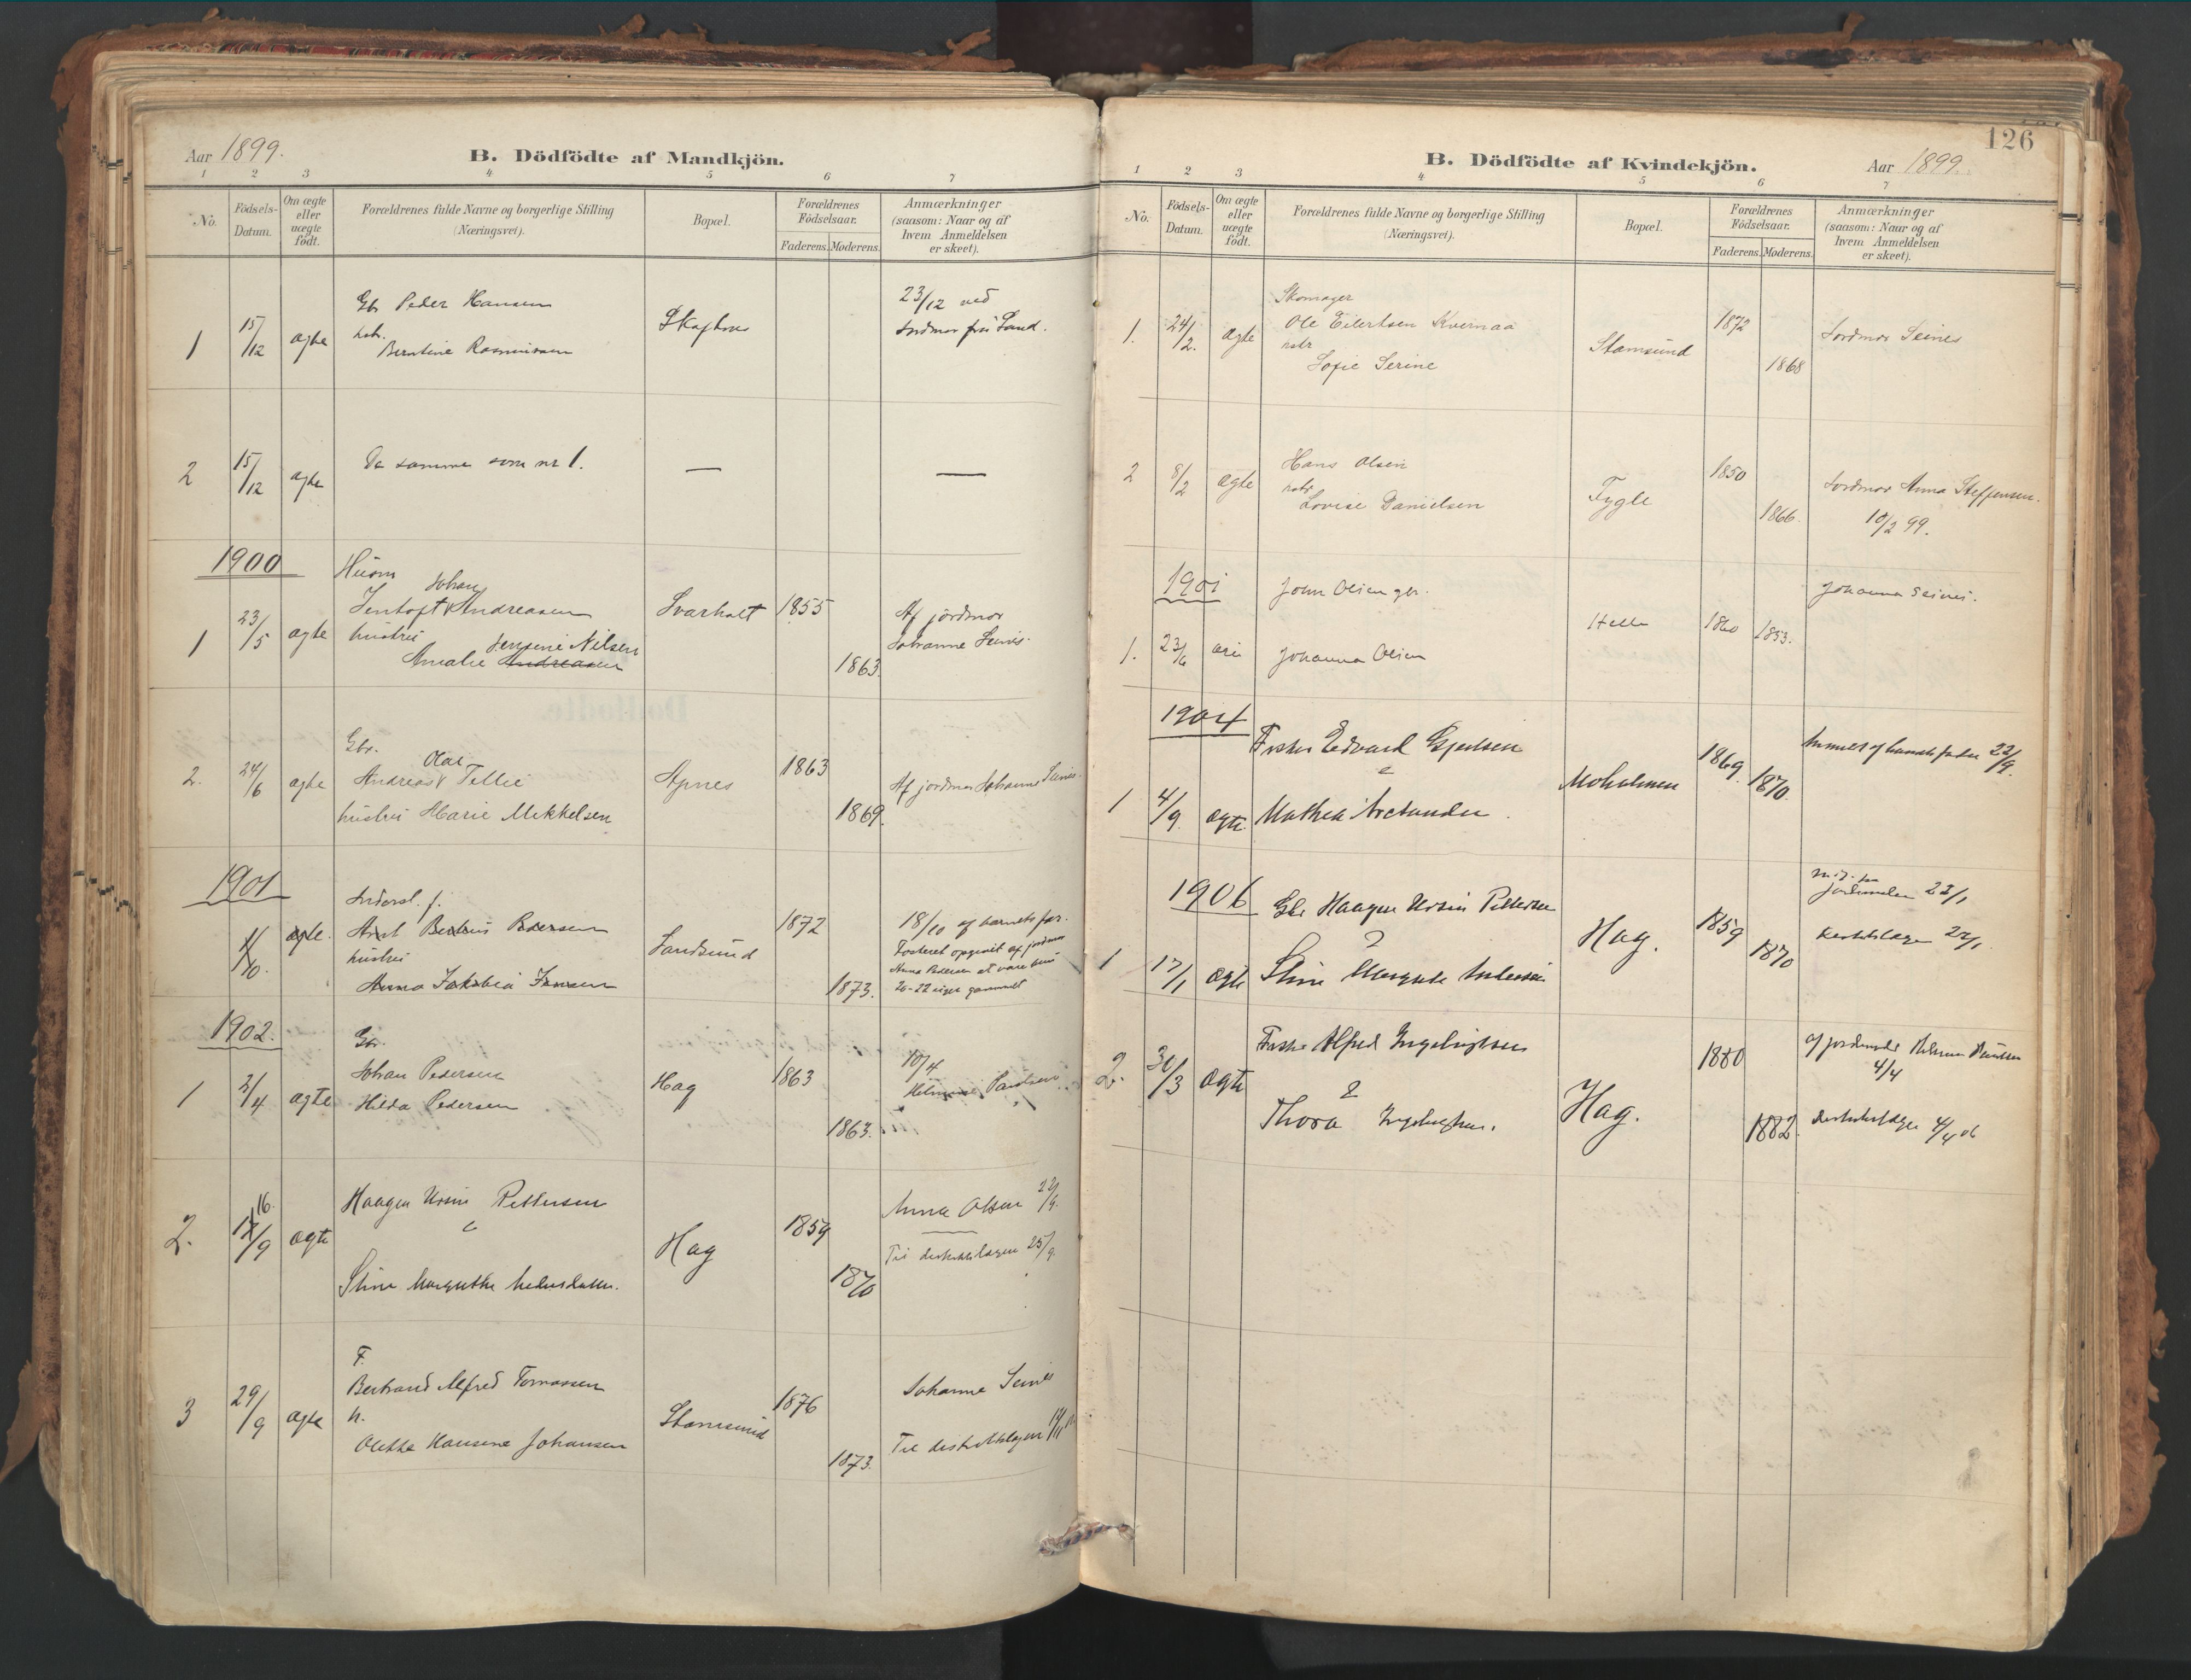 Aar 1899.
B. Dödfödte af Mandkjön.
1 2 3 4 5 6 7
No.
Födsels-Datum.
Om ægte eller uægte födt.
Forældrenes fulde Navne og borgerlige Stilling (Næringsvei).
Bopæl.
Forældrenes Födselsaar.
Faderens. Moderens.
Anmærkninger (saasom: Naar og af hvem Anmeldelsen er skeet).
1 15/12 ægte
Gbr Peder Hansen
hstr.
Berntine Rasmussen
23/12 ved
Jordmor fru Sand.
2 15/12 ægte De samme som nr 1. — —
1900
1 23/5 ægte
Johan
Jentoft Andreasen
hustru Jensine Nilsen
Amalie Andreasen
Svarholt 1855 1863
Af jordmor
Johanne Seines.
2. 24/6 ægte
Gbr. Olai
Andreas Tellie
hustru Marie Mikkelsen
1863 1869.
Af jordmor Johanne Seines.
1901
1/10. ægte.
Bertius Pedersen
hustru
Anna Jakobia Jensen
Sandsund 1872 1873.
18/10 af barnets far.
Fosteret opgivit af jordmor
Anna Pedersen at være
20-22 uger gammelt
1902.
1 2/4 ægte
Gbr.
Johan Pedersen
Hilda Pedersen
Hag 1863 1863.
10/4
2. 16. 17/9 ægte
Haagen Ursin Pettersen
Stine Margrethe
Hag 1859 1870
Anna Olsen 22/9.
Til distriktslægen 25/9.
3 29/9 ægte
F.
Bertrand Alfred Tomassen
h.
Olette Hansine Johansen
Stamsund 1876 1873.
Johanne Seines
Til distriktslægen
126
B. Dödfödte af Kvindekjön.
Aar 1899.
1 2 3 4 5 6 7
No.
Födsels-Datum.
Om ægte eller uægte födt.
Forældrenes fulde Navne og borgerlige Stilling (Næringsvei).
Bopæl.
Forældrenes Födselsaar.
Faderens. Moderens.
Anmærkninger (saasom: Naar og af hvem Anmeldelsen er skeet).
1. 24/2. ægte
Skomager
Ole Eilertsen Kvernaa
hstr
Sofie Serine
Stamsund 1872 1868
Jordmor Seines
2 8/2 ægte
Hans Olsen
hstr
Lovise Danielsen
Fygle 1850 1866.
Jordmor Anna Steffensen.
10/2 99.
1901
1. 23/6
John Olsen
Johanna Olsen
Helle 1860 1853.
Johanna Seines.
1904
1 4/9. ægte
Fisker Edvard Gjertsen
Mathea Arctander
Moholmen 1869. 1870.
22/9.
1906
1 17/1 ægte
Gbr Haagen Ursin Pettersen
&
Stine Margrete
Hag. 1859 1870
23/1
22/1
2. 30/3 ægte
Fisker Alfred Ingebrigtsen
&
Thora Ingebrigtsen.
Hag. 1880 1882.
af jordmoder
4/4
Distriktslæge 4/4 06